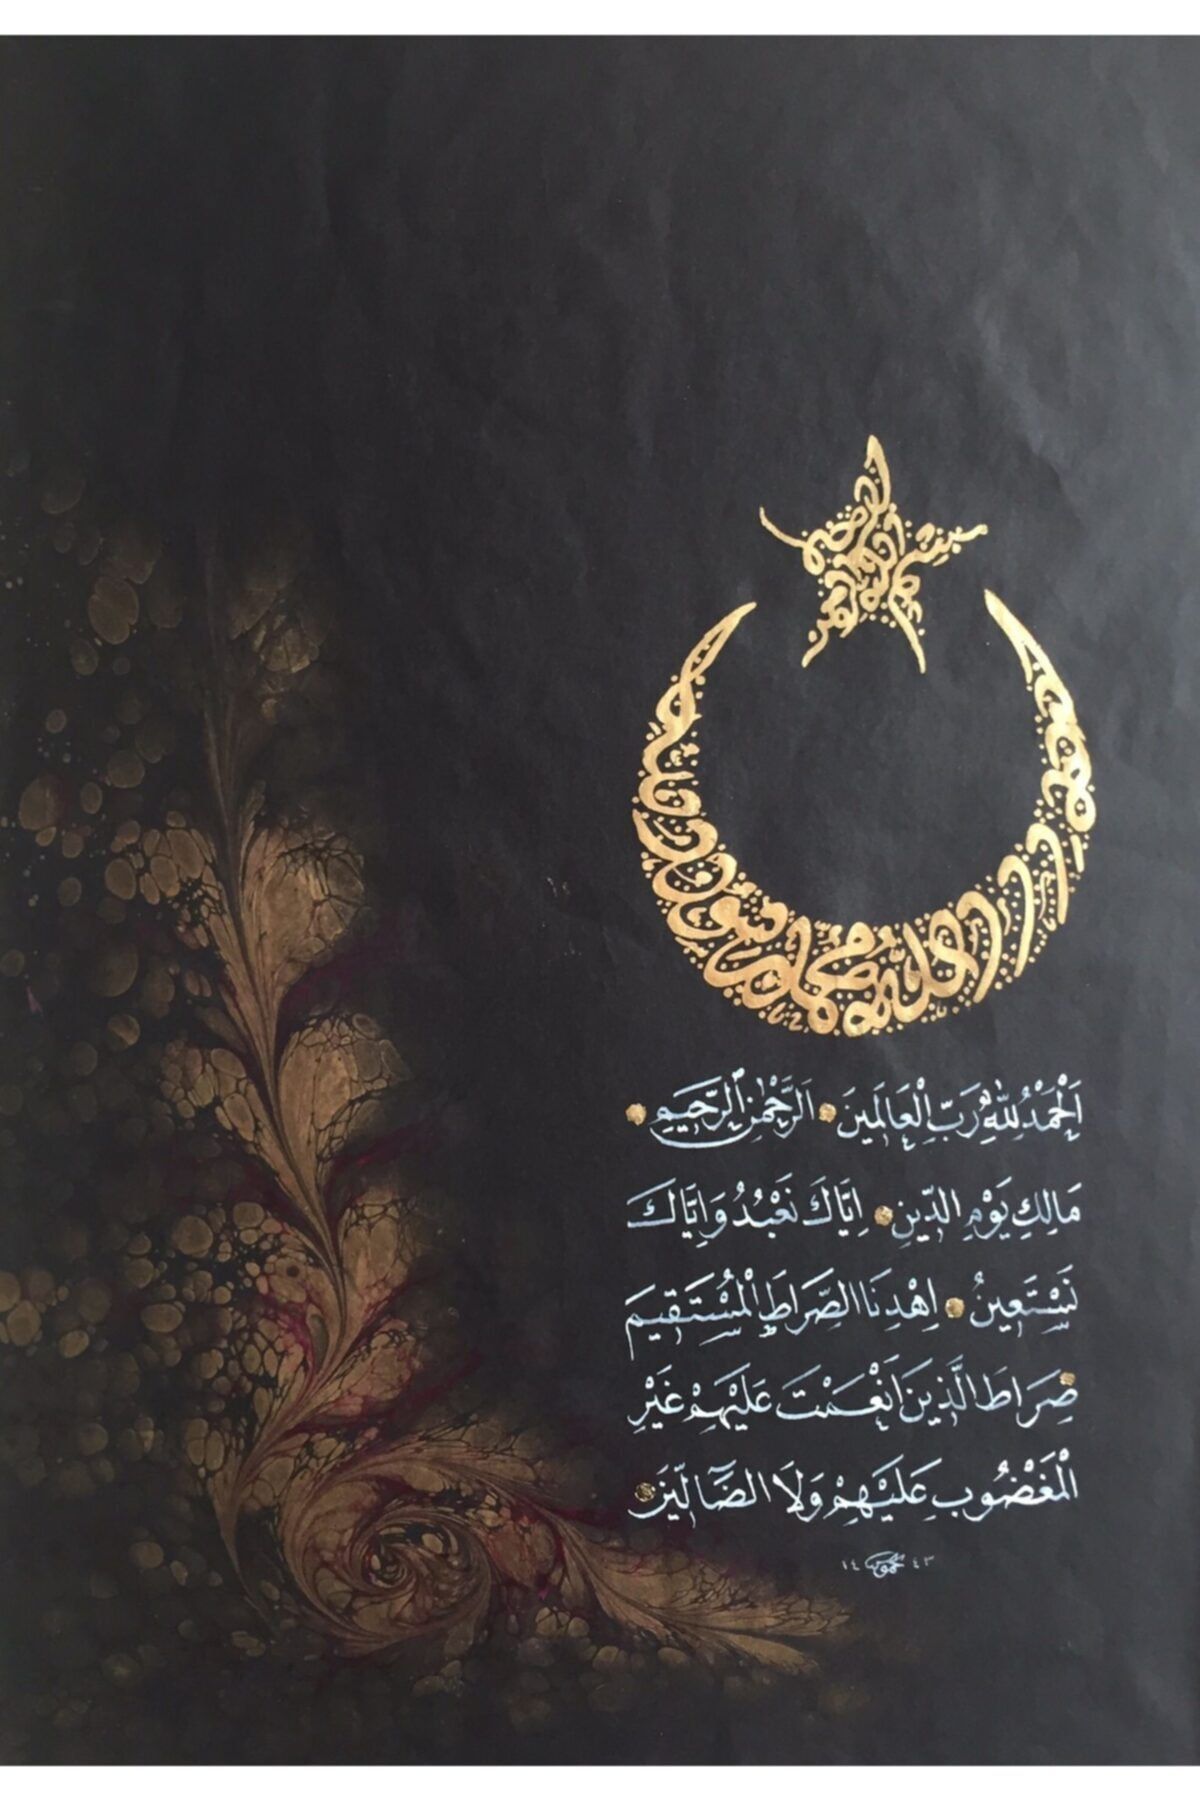 بسم الله الرحمن الرحيم
محمد رسول الله
اَلْحَمْدُ لِلّٰهِ رَبِّ الْعَالَمِينَ ۞ اَلرَّحْمٰنِ الرَّحِيمِ ۞
مَالِكِ يَوْمِ الدِّينِ ۞ اِيَّاكَ نَعْبُدُ وَاِيَّاكَ
نَسْتَعِينُ ۞ اِهْدِنَا الصِّرَاطَ الْمُسْتَقِيمَ ۞
صِرَاطَ الَّذِينَ اَنْعَمْتَ عَلَيْهِمْ غَيْرِ
الْمَغْضُوبِ عَلَيْهِمْ وَلَا الضَّٓالِّينَ ۞
١٤ ٤٣